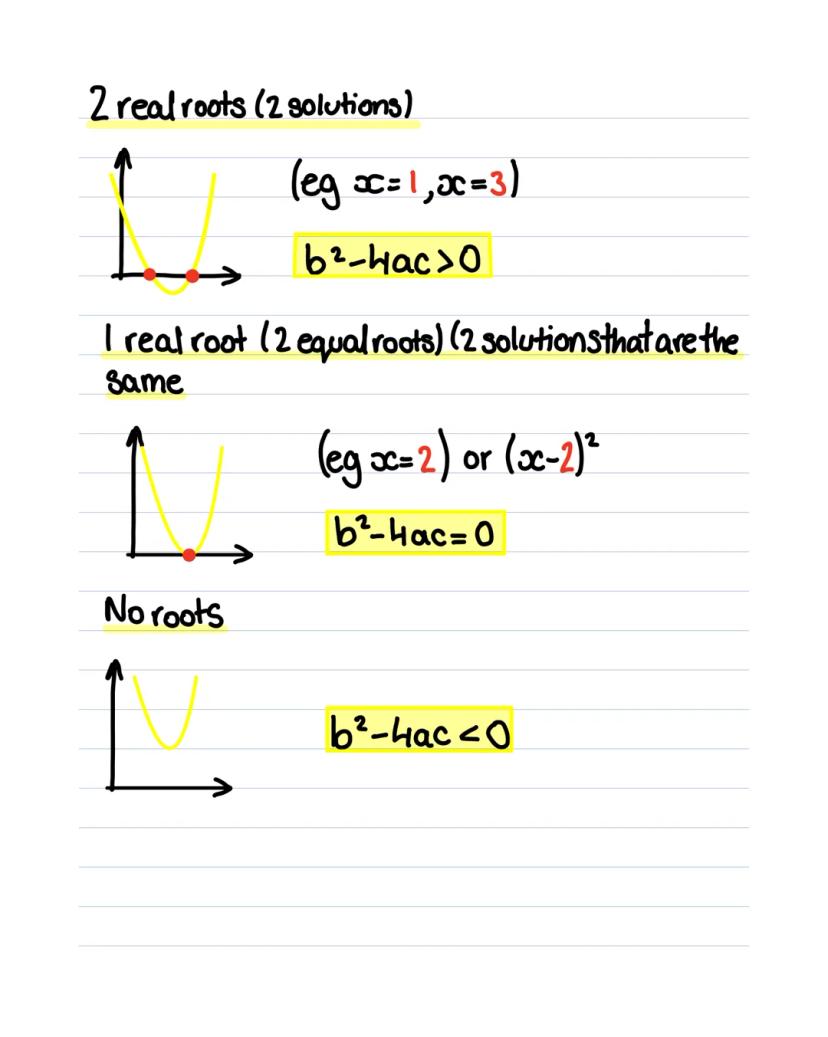 2 real roots (2 solutions)
(eg x=1, x=3)
b²-4ac>0
1 real root (2 equal roots) (2 solutions that are the
same
(eg x=2) or (x-2)²
b²-4ac=0
No roots
b²-4ac<0